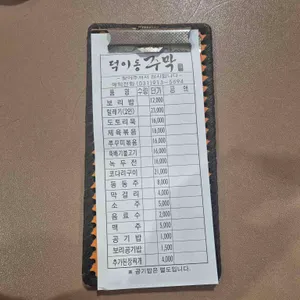 덕이동 주막
찾아주셔서 감사합니다
품명 수량 단가 금액
보리밥 12,000
털레기(2인) 23,000
도토리묵 16,000
제육볶음 16,000
쭈꾸미볶음
뚝배기불고기
녹두전 16,000
코다리구이 21,000
동동주 8,000
막걸리 4,000
소주 5,000
음료수 2,000
맥주 5,000
공기밥 1,000
보리공기밥 1,500
추가된장찌개 4,000
※ 공기밥은 별도입니다.